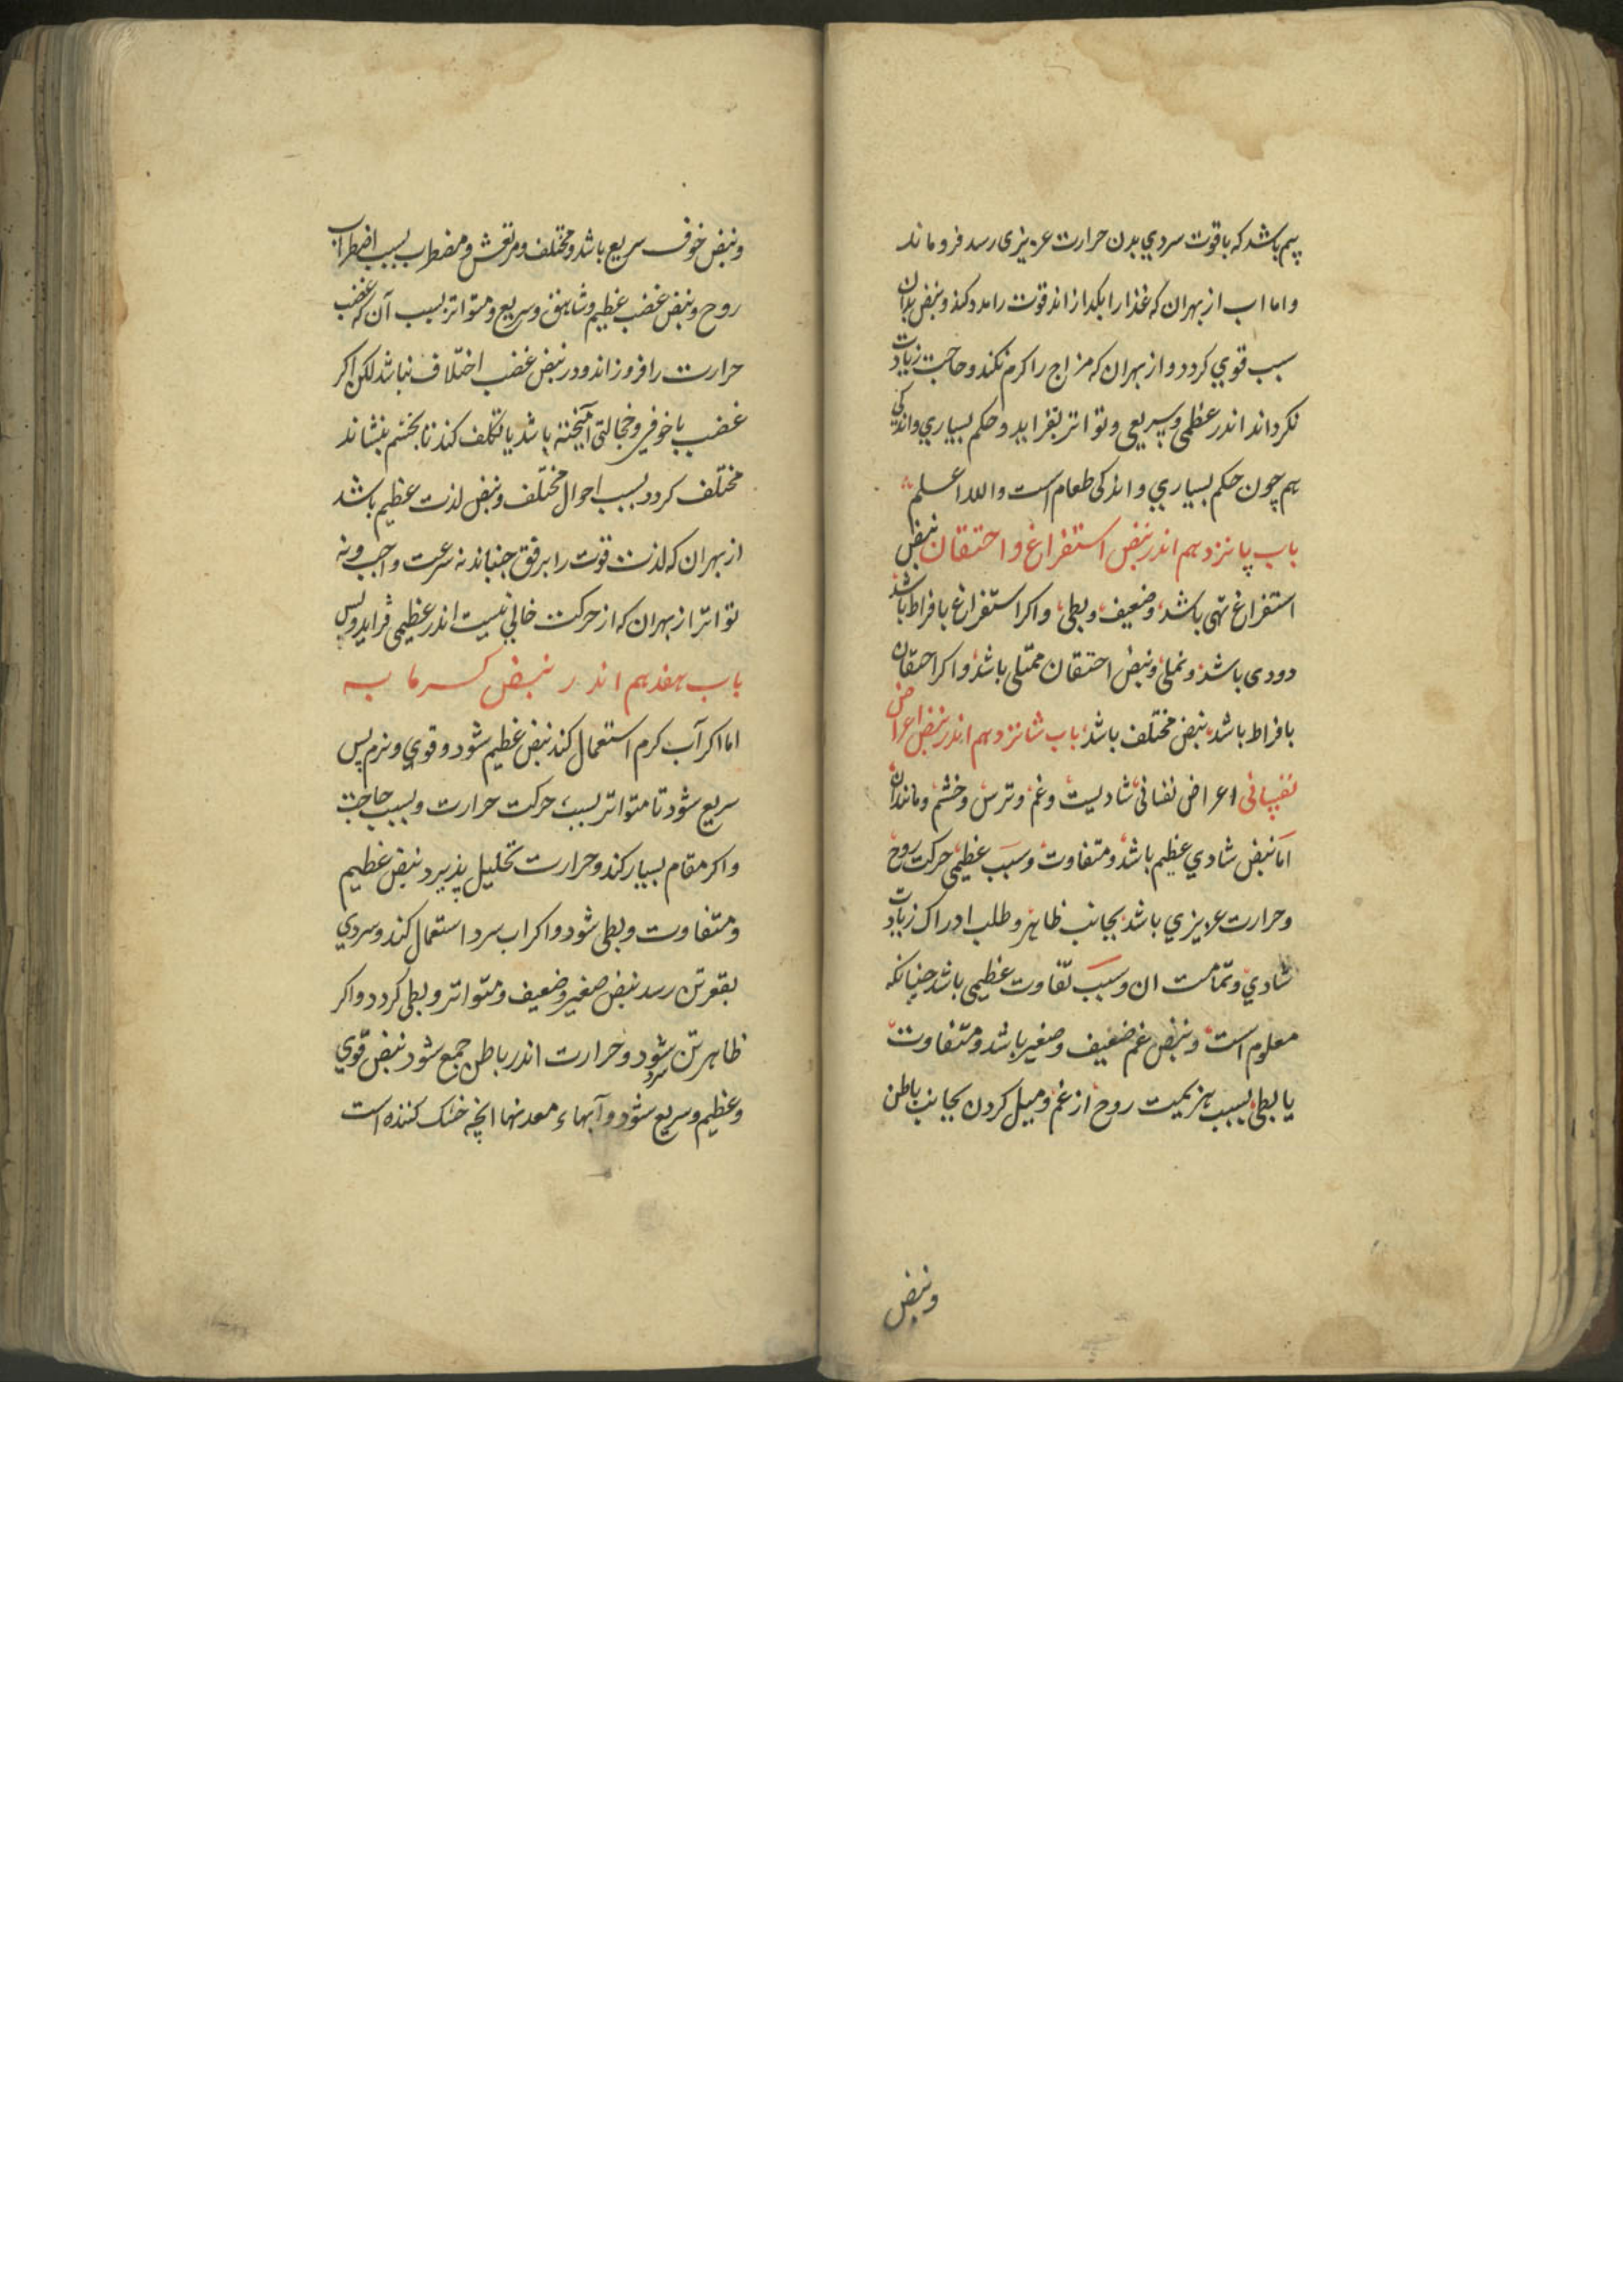 بیم باشد که با قوت سردي بدن حرارت عزیزی رسد فروماند
واما اب از بهران که غذا را بکدازاند قوت را مدد کند ونبض بدان
سبب قوي کردد واز بهران که مزاج را کرم نکند وحاجت زیادت
نکرداند اندر عظمی وسریعی وتواتر بفزاید وحکم بسیاري واندکی
هم چون حکم بسیاري واندکی طعام است والله اعلم
باب پانزدهم اندر نبض استفراغ واحتقان نبض
استفراغ تهی باشد وضعیف وبطی واکر استفراغ بافراط باشد
دودی باشد ونملی ونبض احتقان ممتلی باشد واکر احتقان
بافراط باشد نبض مختلف باشد باب شانزدهم اندر نبض اعراض
نفسانی اعراض نفسانی شادیست وغم وترس وخشم ومانندان
اما نبض شادي عظیم باشد ومتفاوت وسبب عظیمی حرکت روح
وحرارت عزیزي باشد بجانب ظاهر وطلب ادراک زیادت
شادي وتمامت ان وسبب تفاوت عظیمی باشد چنانکه
معلوم است ونبض غم ضعیف وصغیر باشد ومتفاوت
یا بطی بسبب هزیمیت روح از غم ومیل کردن بجانب باطن
ونبض
ونبض خوف سریع باشد ومختلف ومرتعش ومضطرب بسبب اضطراب
روح ونبض غضب عظیم وشاهق وسریع ومتواتر بسبب آن که غضب
حرارت را افروزاند ودر نبض غضب اختلاف نباشد لکن اکر
غضب با خوفی وخجالتی آمیخته باشد یا تکلف کند تا بخشم بنشاند
مختلف کردد بسبب احوال مختلف ونبض لذت عظیم باشد
از بهران که لذت قوت را برفق جنباند نه سرعت واجب ونه
تواتر از بهران که از حرکت خالی نیست اندر عظیمی فزاید وبس
باب هفدهم اندر نبض کرمابه
اما اکر آب کرم استعمال کند نبض عظیم شود وقوي ونرم پس
سریع شود تا متواتر بسبب حرکت حرارت وبسبب حاجت
واکر مقام بسیار کند وحرارت تحلیل پذیرد نبض عظیم
ومتفاوت وبطی شود واکر اب سرد استعمال کند وسردي
بقعر تن رسد نبض صغیر وضعیف ومتواتر وبطی کردد واکر
ظاهر تن سرد شود وحرارت اندر باطن جمع شود نبض قوي
وعظیم وسریع شود وآبهاء معدنها انچه خشک کننده است